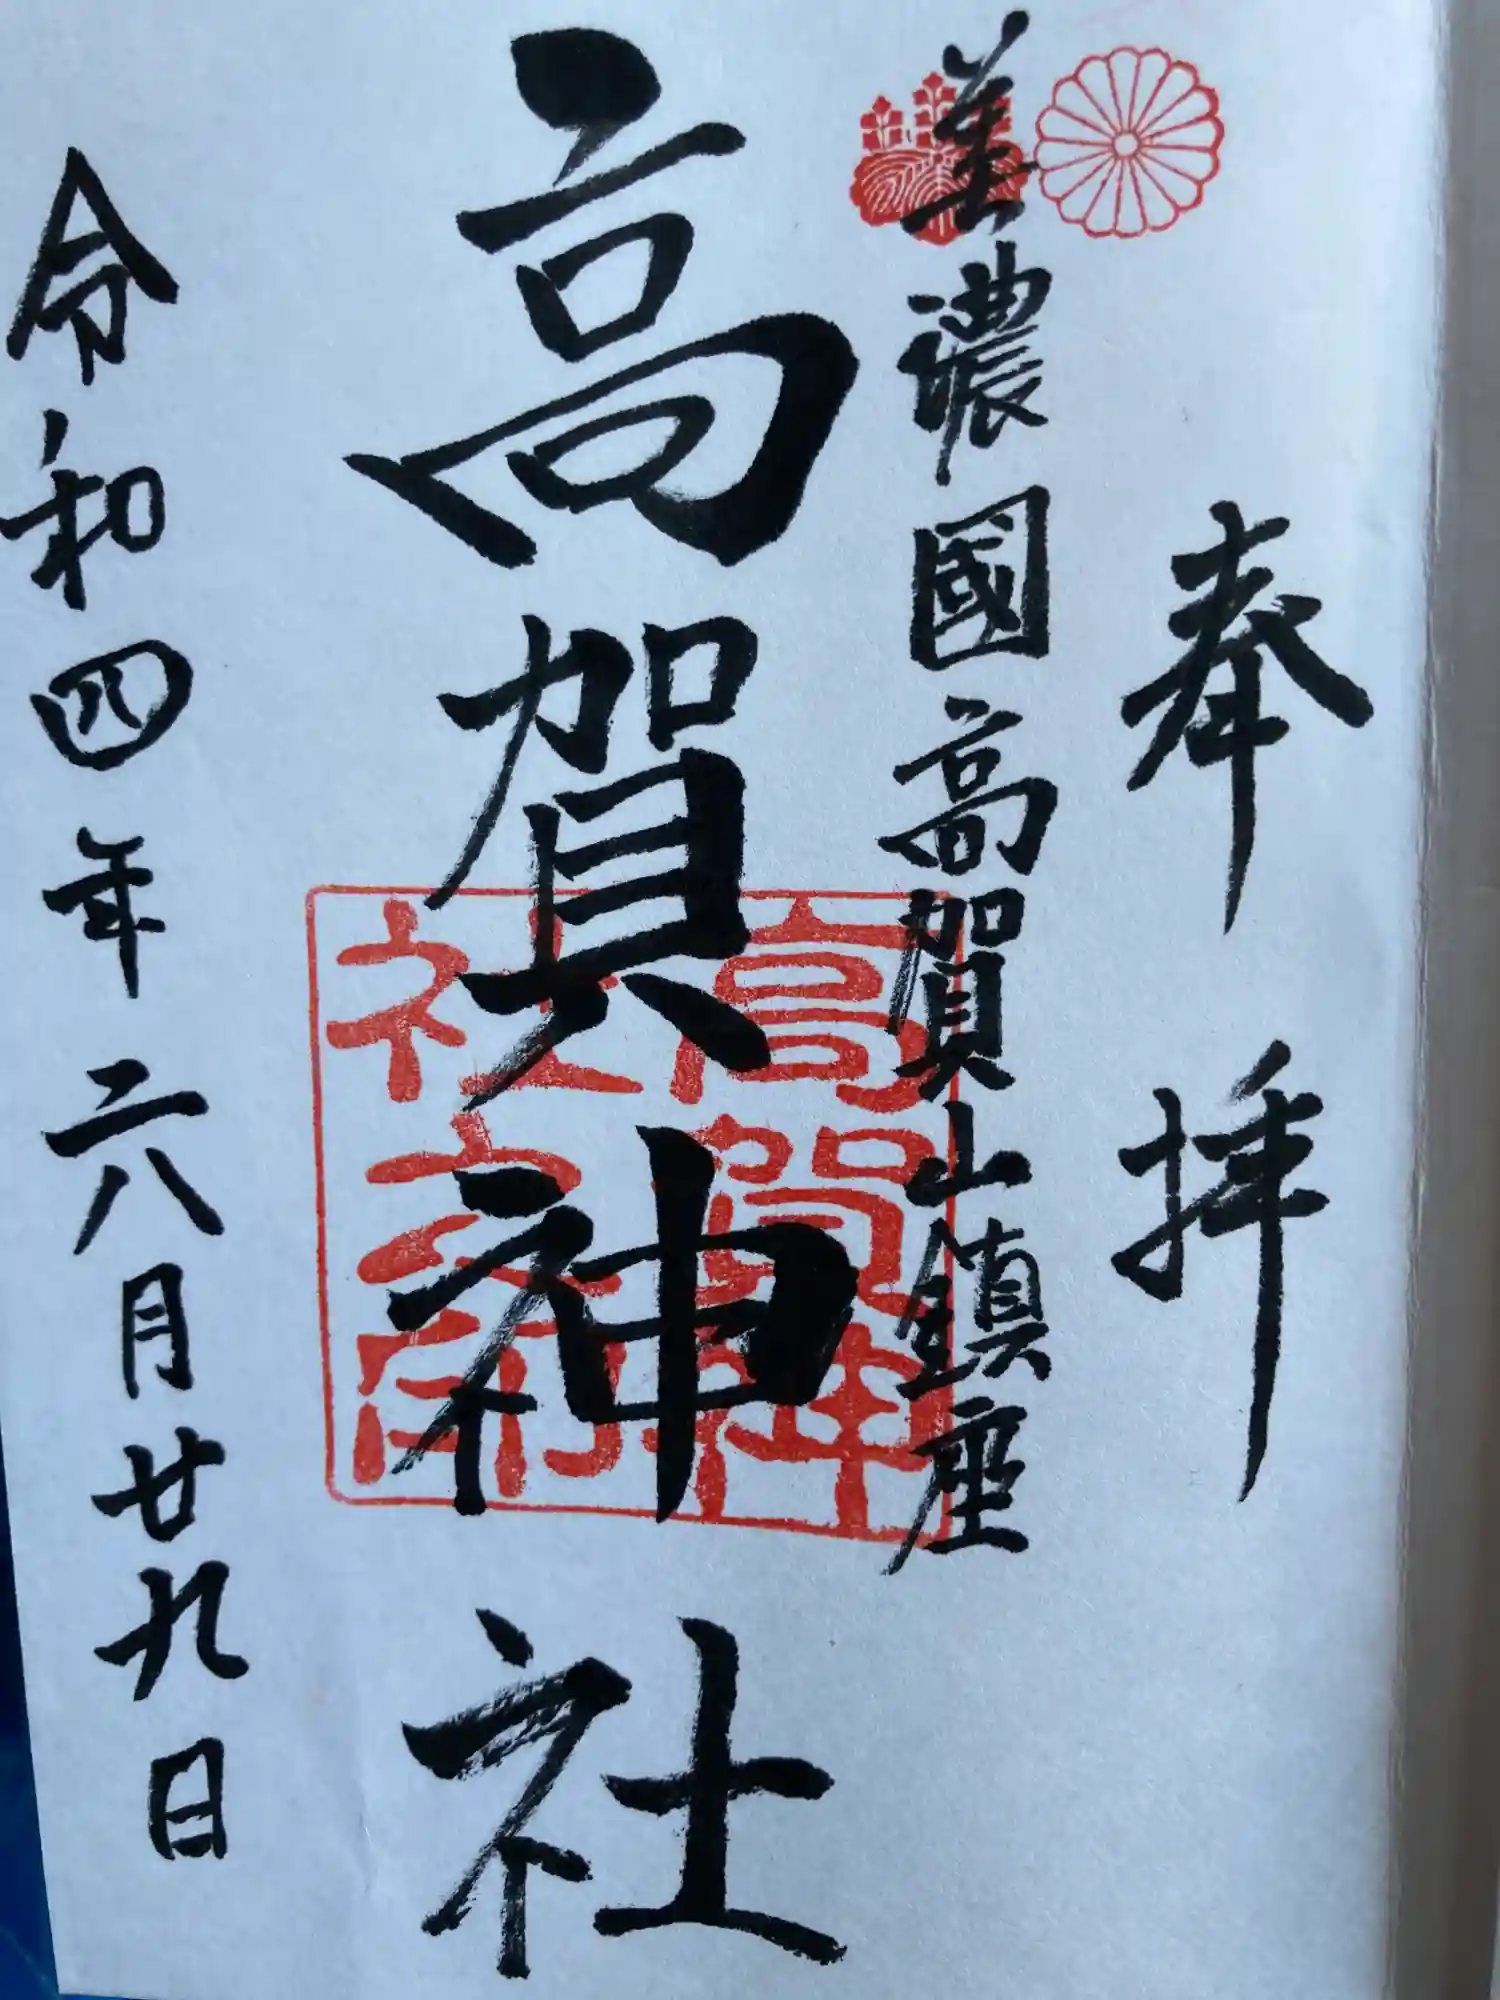 奉拝
美濃國高賀山鎮座
高賀神社
高賀神
社之印
令和四年六月廿九日